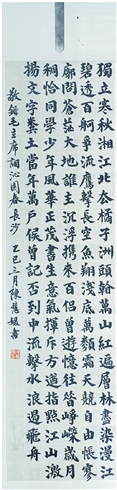 獨立寒秋湘江北去橘子洲頭看萬山紅遍層林盡染漫江
碧透百舸爭流鷹擊長空魚翔淺底萬類霜天競自由悵寥
廓問蒼茫大地誰主沉浮攜來百侶曾遊憶往昔崢嶸歲月
稠恰同學少年風華正茂書生意氣揮斥方遒指點江山激
揚文字糞土當年萬戶侯曾記否到中流擊水浪遏飛舟
敬錄毛主席詞沁園春長沙 乙巳三月陳慧媛書